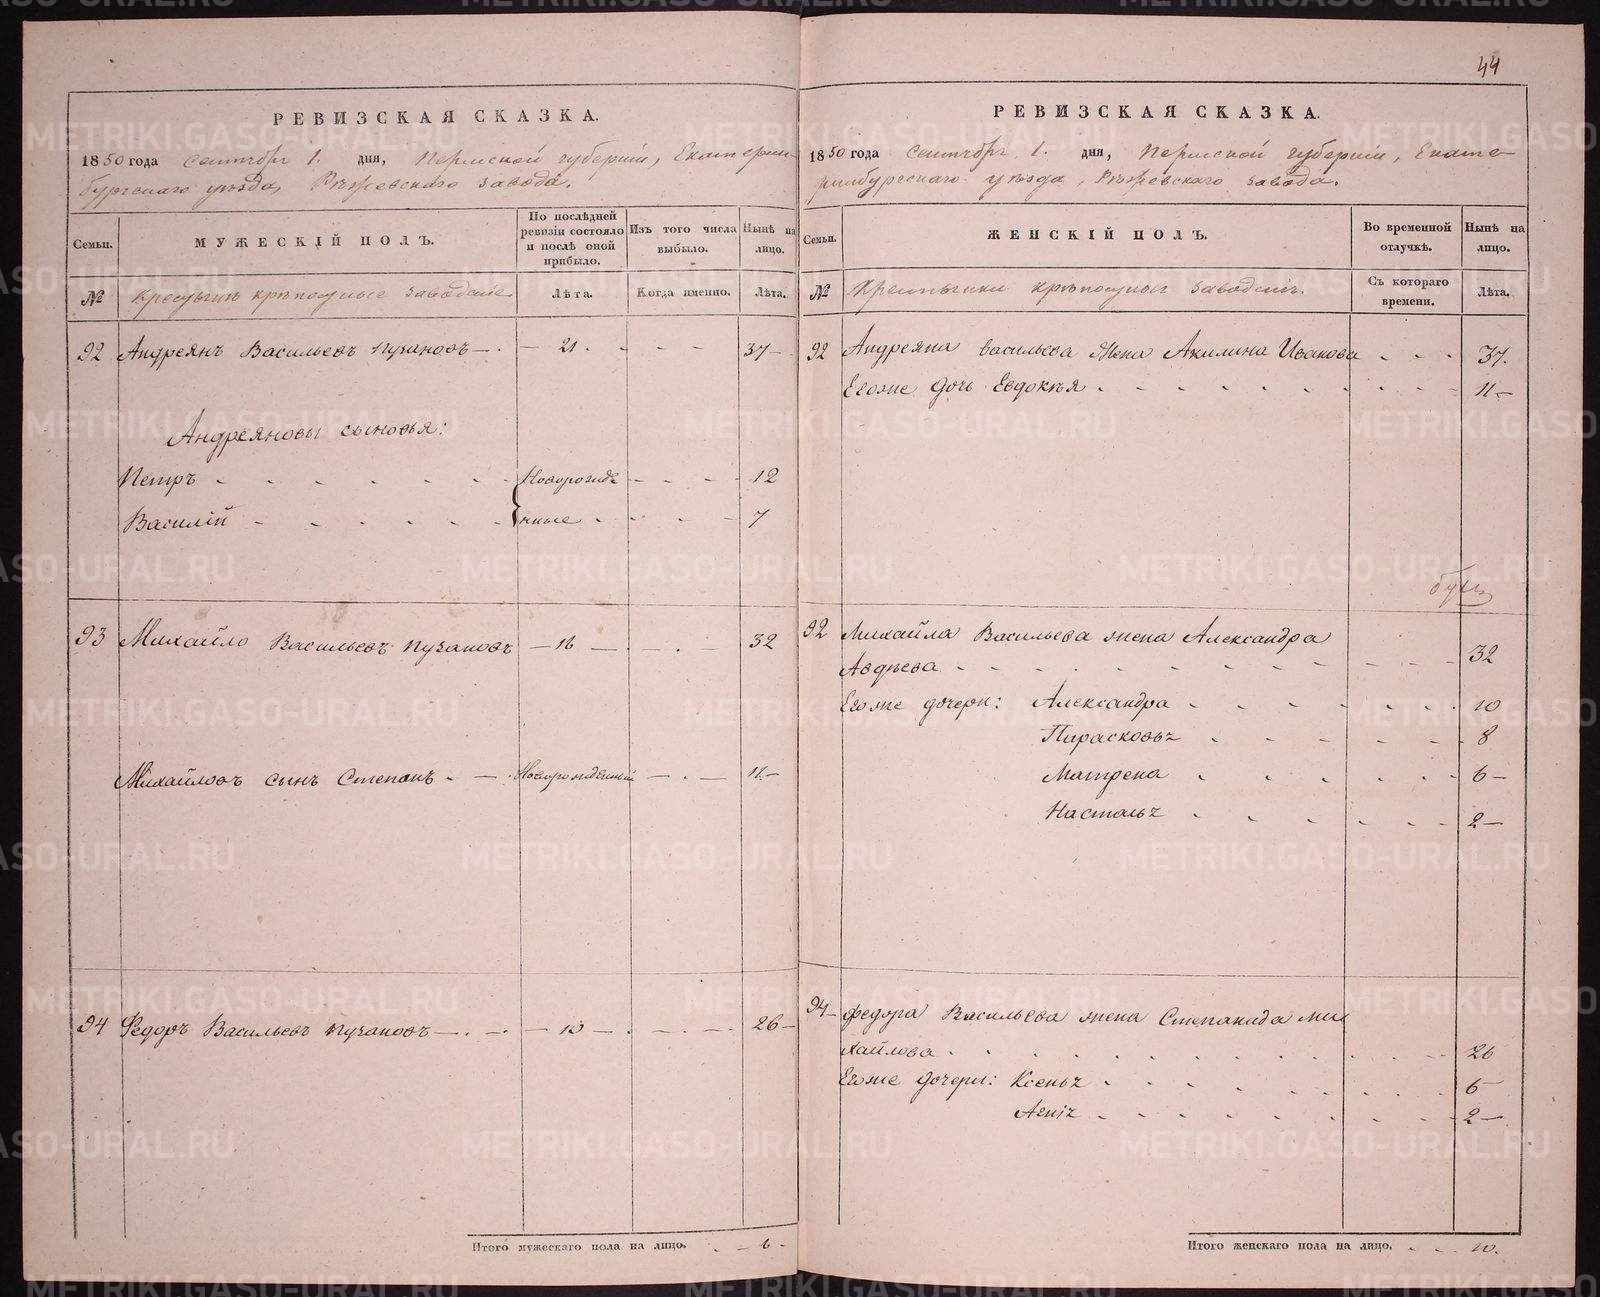 44
РЕВИЗСКАЯ СКАЗКА.
1850 года сентября 1. дня, Пермской губерніи, Екатерин-
бургскаго уѣзда, Рѣжевскаго завода.
Семьи.
МУЖЕСКІЙ ПОЛЪ.
По послѣдней
ревизіи состояло
и послѣ оной
прибыло.
Изъ того числа
выбыло.
Нынѣ на
лицо.
№
Крестьяне крѣпостные заводскіе
Лѣта.
Когда именно.
Лѣта.
92 Андреянъ Васильевъ Пузановъ — 21 37
Андреяновы сыновья:
Петръ Новорожде 12
Василій нные 7
93 Михайло Васильевъ Пузановъ — 16 — 32
Михайловъ сынъ Степанъ Новорожденный 11
94 Федоръ Васильевъ Пузановъ — 10 — 26
Итого мужескаго пола на лицо. 6
РЕВИЗСКАЯ СКАЗКА.
1850 года сентября 1. дня, Пермской губерніи, Екате-
ринбургскаго уѣзда, Рѣжевскаго завода.
Семьи.
ЖЕНСКІЙ ПОЛЪ.
Во временной
отлучкѣ.
Нынѣ на
лицо.
№
Крестьянки крѣпостныя заводскія.
Съ котораго
времени.
Лѣта.
92 Андреяна Васильева жена Акилина Иванова 37.
Егоже дочь Евдокѣя 11
92 Михайла Васильева жена Александра
Авдѣева 32
Егоже дочери: Александра 10
Парасковья 8
Матрена 6
Настасья 2
94 Федора Васильева жена Степанида Ми
хайлова 26
Егоже дочери: Ксенья 6
Агнія 2
Итого женскаго пола на лицо. 10.
METRIKI.GASO-URAL.RU